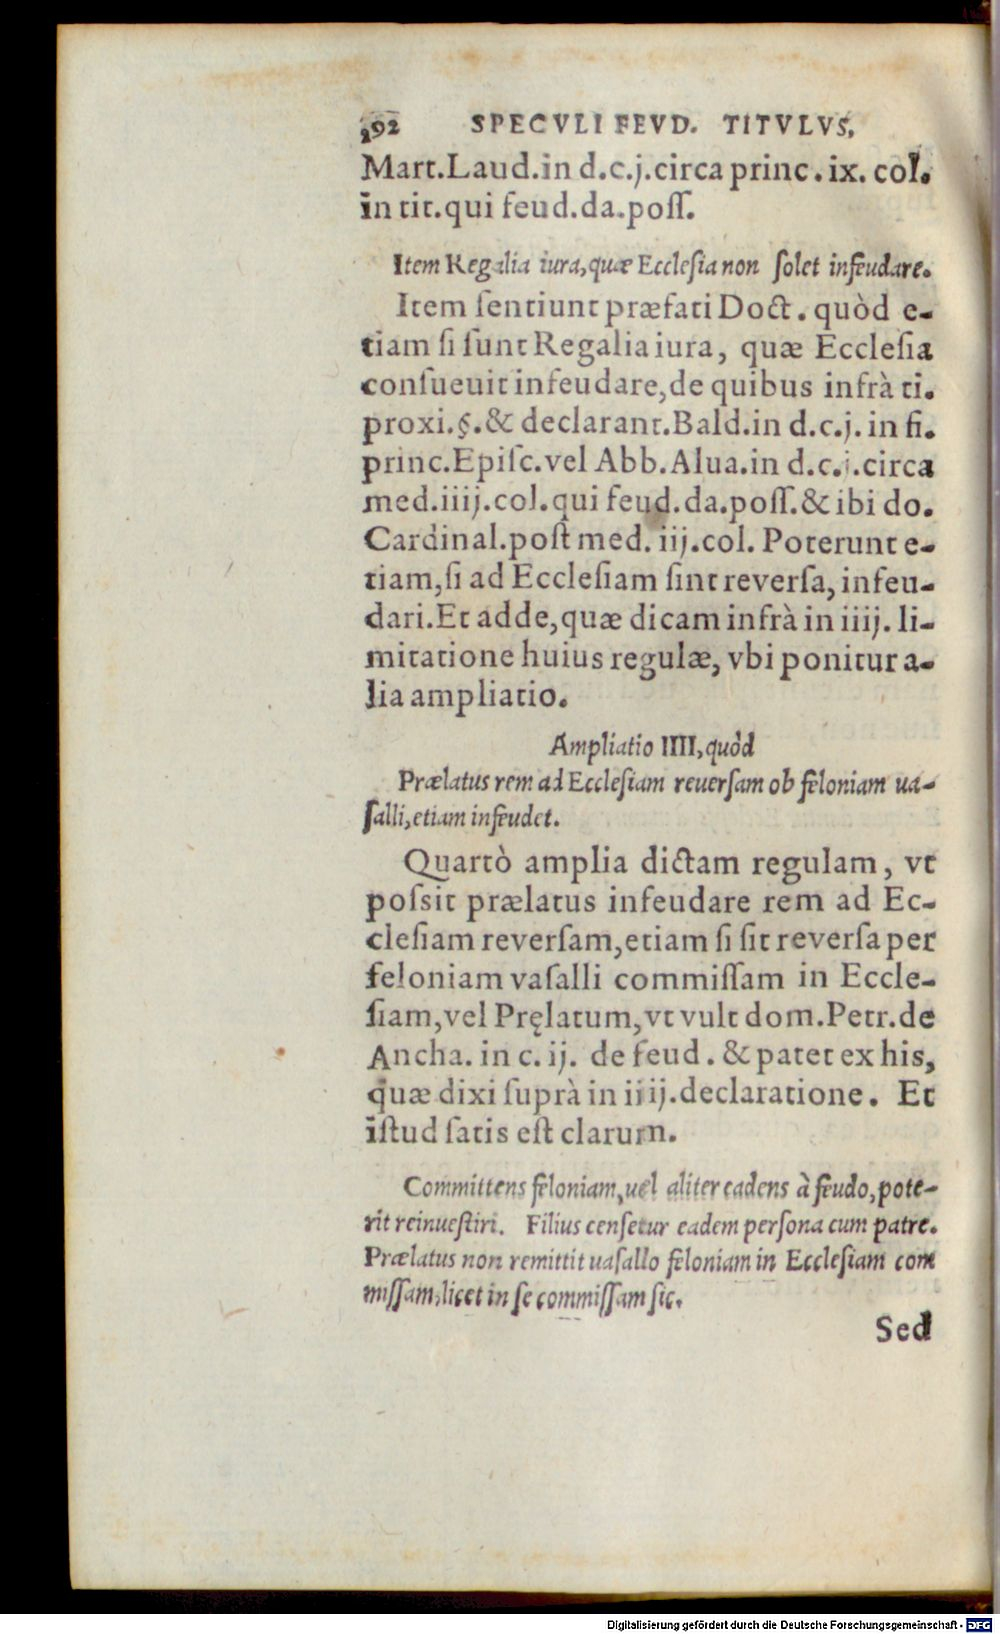 292 SPECVLI FEVD. TITVLVS,
Mart.Laud.in d.c.j.circa princ.ix. col.
in tit.qui feud.da.poſſ.
Item Regalia iura,quæ Eccleſia non ſolet infeudare.
Item ſentiunt præfati Doct. quòd e-
tiam ſi ſunt Regalia iura, quæ Eccleſia
conſueuit infeudare,de quibus infrà ti.
proxi.§.& declarant.Bald.in d.c.j. in fi.
princ.Epiſc.vel Abb.Alua.in d.c.j.circa
med.iiij.col.qui feud.da.poſſ.& ibi do.
Cardinal.poſt med. iij.col. Poterunt e-
tiam,ſi ad Eccleſiam ſint reverſa, infeu-
dari.Et adde,quæ dicam infrà in iiij. li-
mitatione huius regulæ, vbi ponitur a-
lia ampliatio.
Ampliatio IIII,quòd
Prælatus rem ad Eccleſiam reuerſam ob feloniam ua-
ſalli,etiam infeudet.
Quartò amplia dictam regulam, vt
poſsit prælatus infeudare rem ad Ec-
cleſiam reverſam,etiam ſi ſit reverſa per
feloniam vaſalli commiſſam in Eccle-
ſiam,vel Pręlatum,vt vult dom.Petr.de
Ancha. in c. ij. de feud. & patet ex his,
quæ dixi ſuprà in iiij.declaratione. Et
iſtud ſatis eſt clarum.
Committens feloniam,uel aliter cadens à feudo,pote-
rit reinueſtiri. Filius cenſetur eadem perſona cum patre.
Prælatus non remittit uaſallo feloniam in Eccleſiam com
miſſam,licet in ſe commiſſam ſic.
Sed
Digitalisierung gefördert durch die Deutsche Forschungsgemeinschaft - DFG